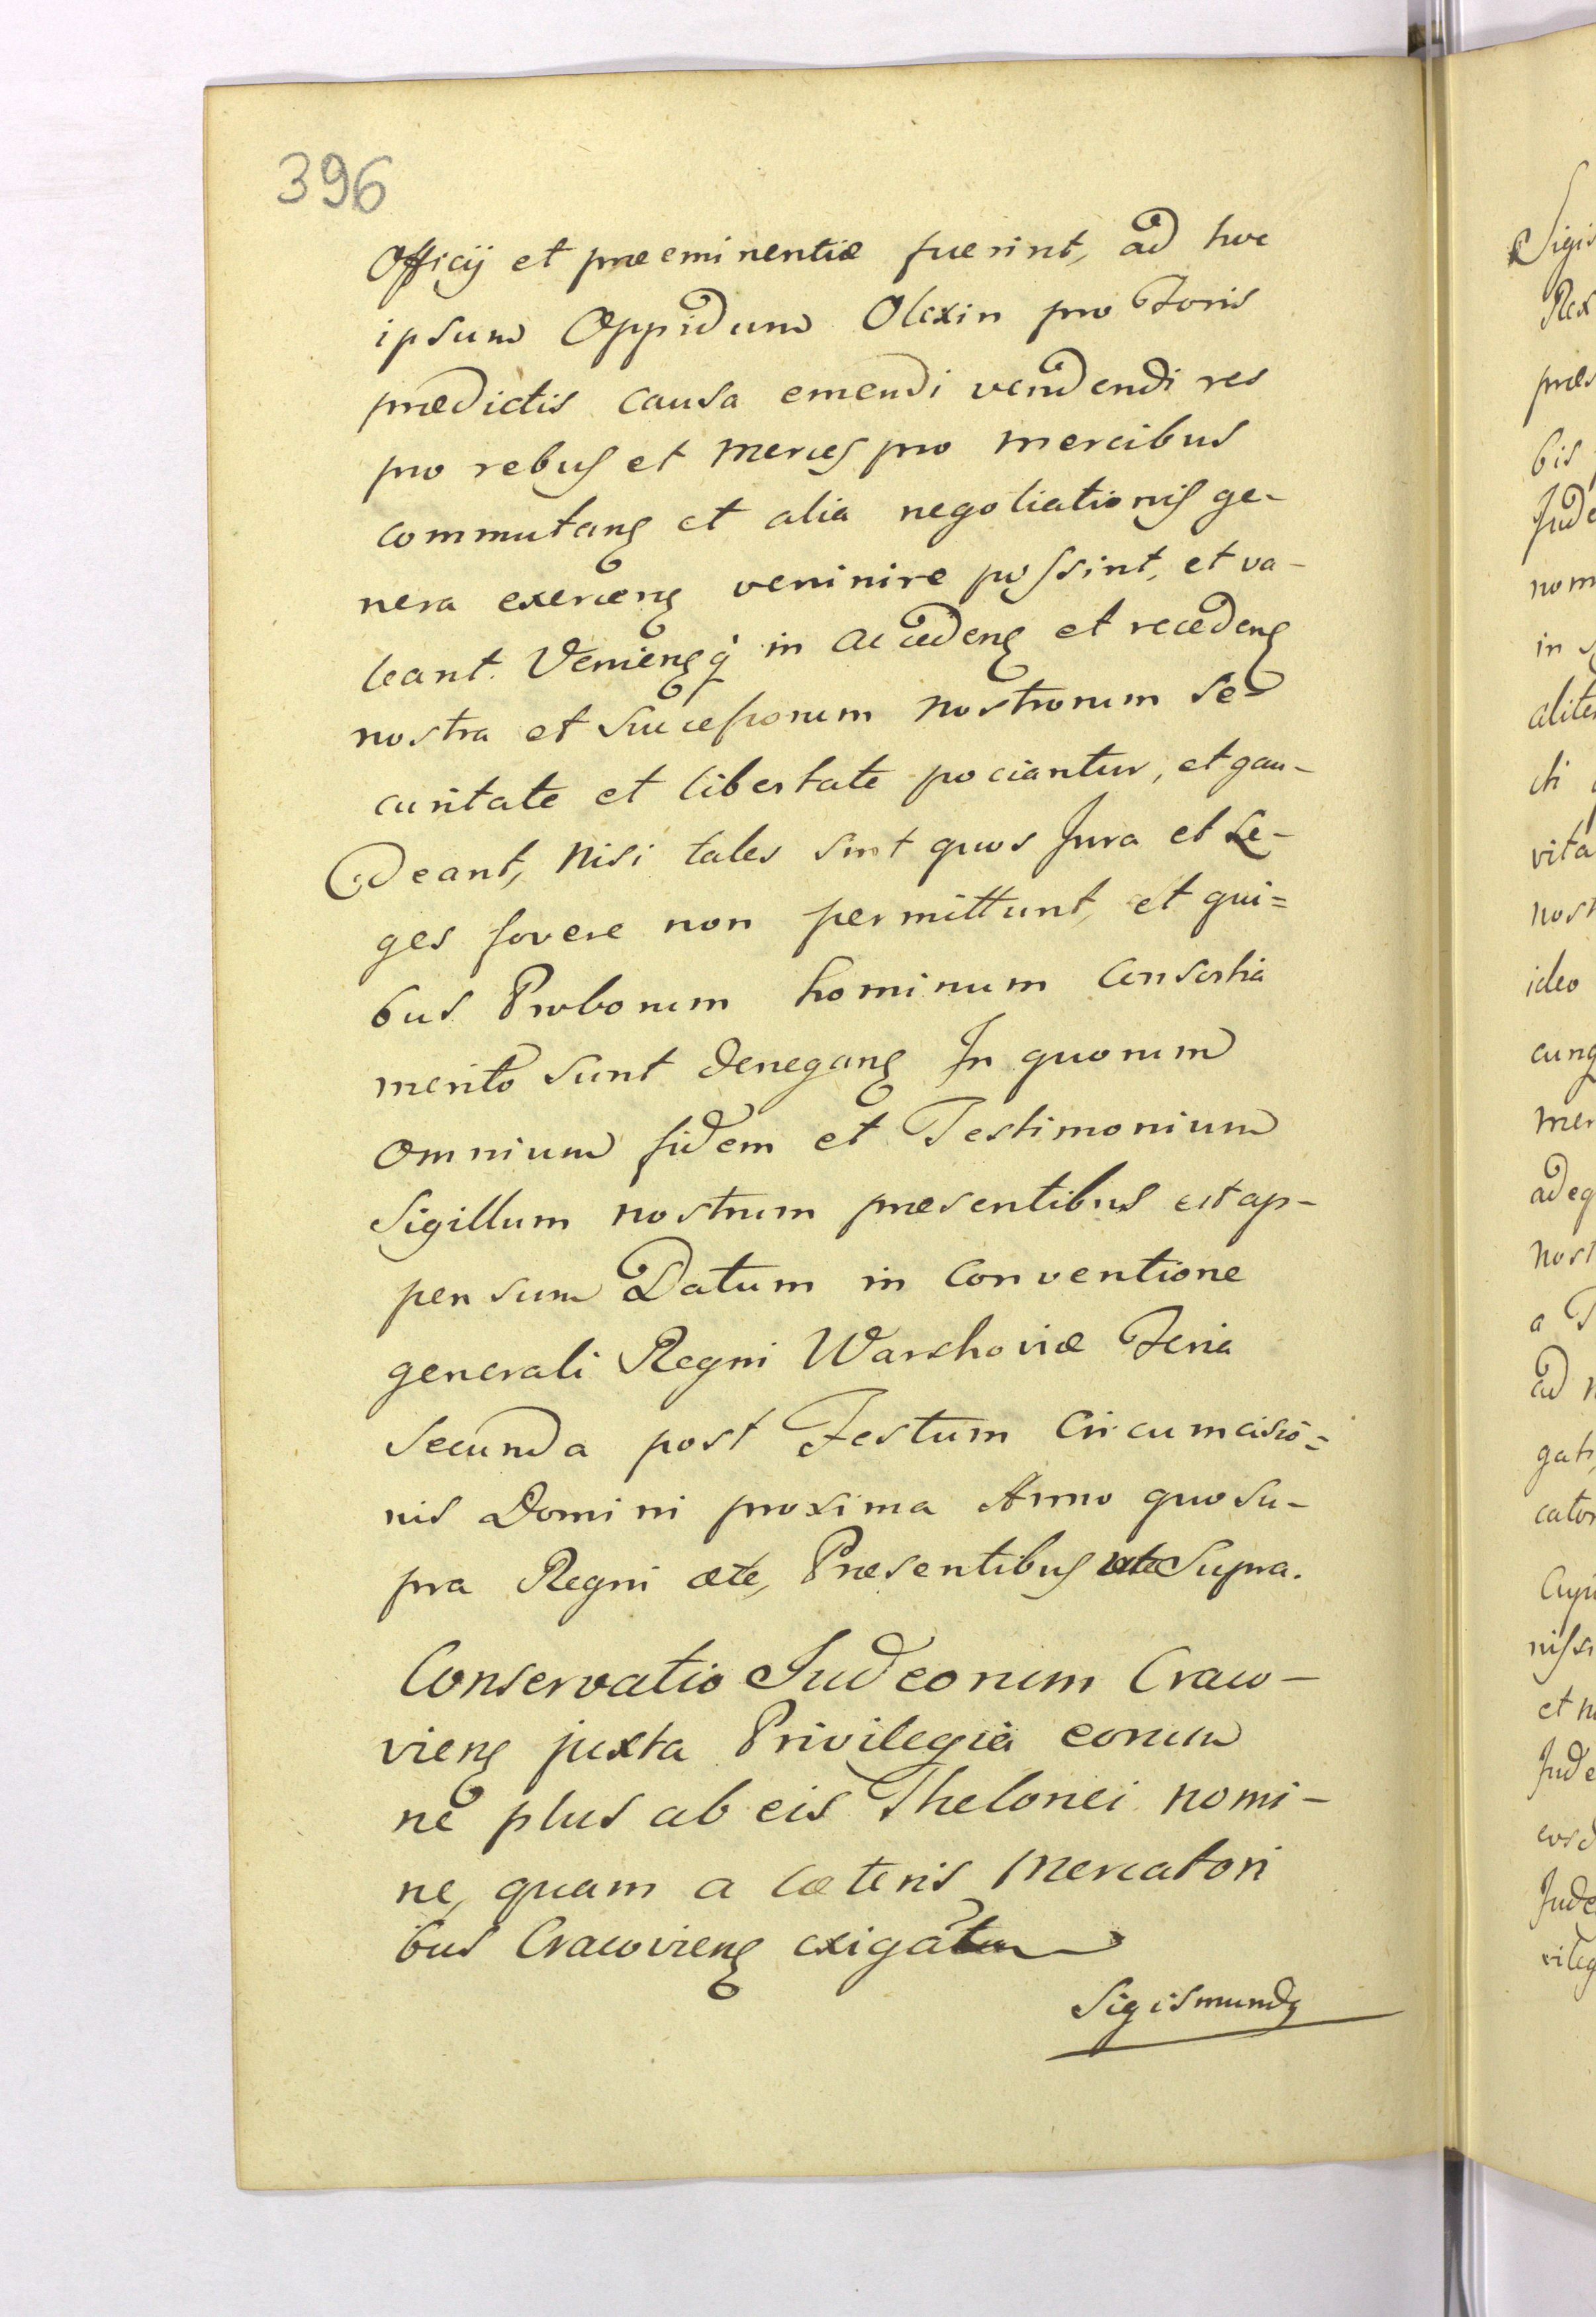 396
Officij et præeminentiæ fuerint, ad hoc
ipsum Oppidum Olexin pro Foris
prædictis causa emendi vendendi res
pro rebus et Merces pro mercibus
commutanꝫ et alia negotiationis ge-
nera exercenꝫ veninire possint, et va-
leant. Venienꝫqꝫ in accedenꝫ et recedenꝫ
nostra et Successorum nostrorum se-
curitate et libertate pociantur, et gau-
deant, nisi tales sint quos Jura et Le-
ges fovere non permittunt, et qui=
bus Proborum hominum Consortia
merito sunt deneganꝫ In quorum
omnium fidem et Testimonium
Sigillum nostrum præsentibus est ap-
pensum Datum in Conventione
generali Regni Warschoviæ Feria
Secunda post Festum Circumcisio=
nis Domini proxima Anno quo su-
pra Regni ætc, Præsentibus Supra.
Conservatio Judeorum Craco-
vienꝫ juxta Privilegia eorum
ne plus ab eis Thelonei nomi-
ne, quam a cæteris Mercatori
bus Cracovienꝫ exigatur
Sigismundꝫ
Sigis
Rex
præs
bis
Jude
nom
in
alite
cti
vita
nost
ideo
cunq
mer
adeq
nost
a T
ad n
gati
cator
Cupi
nissi
et n
Jude
eosd
Jude
vileg